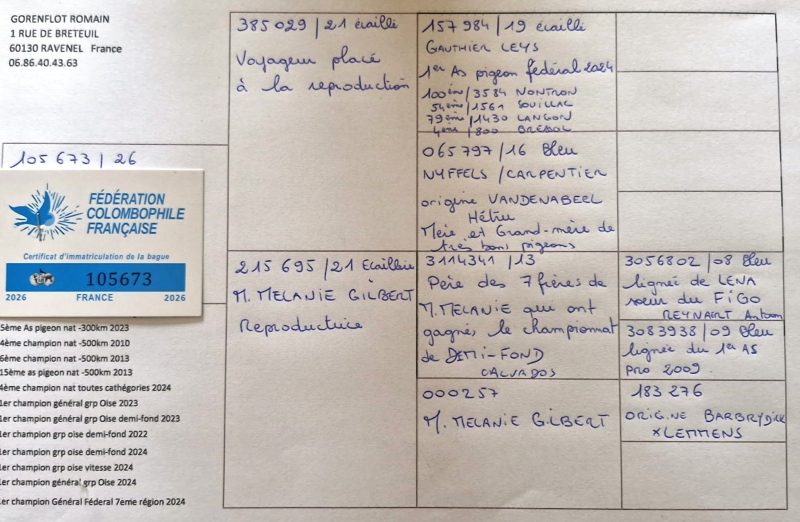 GORENFLOT ROMAIN
1 RUE DE BRETEUIL
60130 RAVENEL France
06.86.40.43.63
105 673 / 26
FÉDÉRATION
COLOMBOPHILE
FRANÇAISE
Certificat d'immatriculation de la bague
105673
2026 FRANCE 2026
5ème As pigeon nat -300km 2023
4ème champion nat -500km 2010
6ème champion nat -500km 2013
15ème as pigeon nat -500km 2013
4ème champion nat toutes cathégories 2024
1er champion général grp Oise 2023
1er champion général grp Oise demi-fond 2023
1er champion grp oise demi-fond 2022
1er champion grp oise demi-fond 2024
1er champion grp oise vitesse 2024
1er champion général grp Oise 2024
1er champion Général Féderal 7eme région 2024
385029 / 21 écaillé
Voyageur placé
à la reproduction
215 695 / 21 Ecaillée
M. MELANIE GILBERT
Reproductrice
157 984 / 19 écaillé
GAUTHIER LEYS
1er As pigeon fédéral 2024
100ème / 3584 NONTRON
54ème / 1561 SOUILLAC
79ème / 1430 LANGON
4ème / 800 BRESSOL
065797 / 16 Bleu
NYFFELS / CARPENTIER
origine VANDENABEEL
Mère et Grand-mère de
très bons pigeons
3114341 / 13
Père des 7 frères de
M. MELANIE qui ont
gagnés le championnat
de DEMI-FOND
CALVADOS
000257
M. MELANIE GILBERT
3056802 / 08 Bleu
lignée de LENA
soeur du FIGO
REYNART Antoon
3083938 / 09 Bleu
lignée du 1er AS
pro 2009
183 276
ORIGINE BARBRY DIRK
x LEMMENS